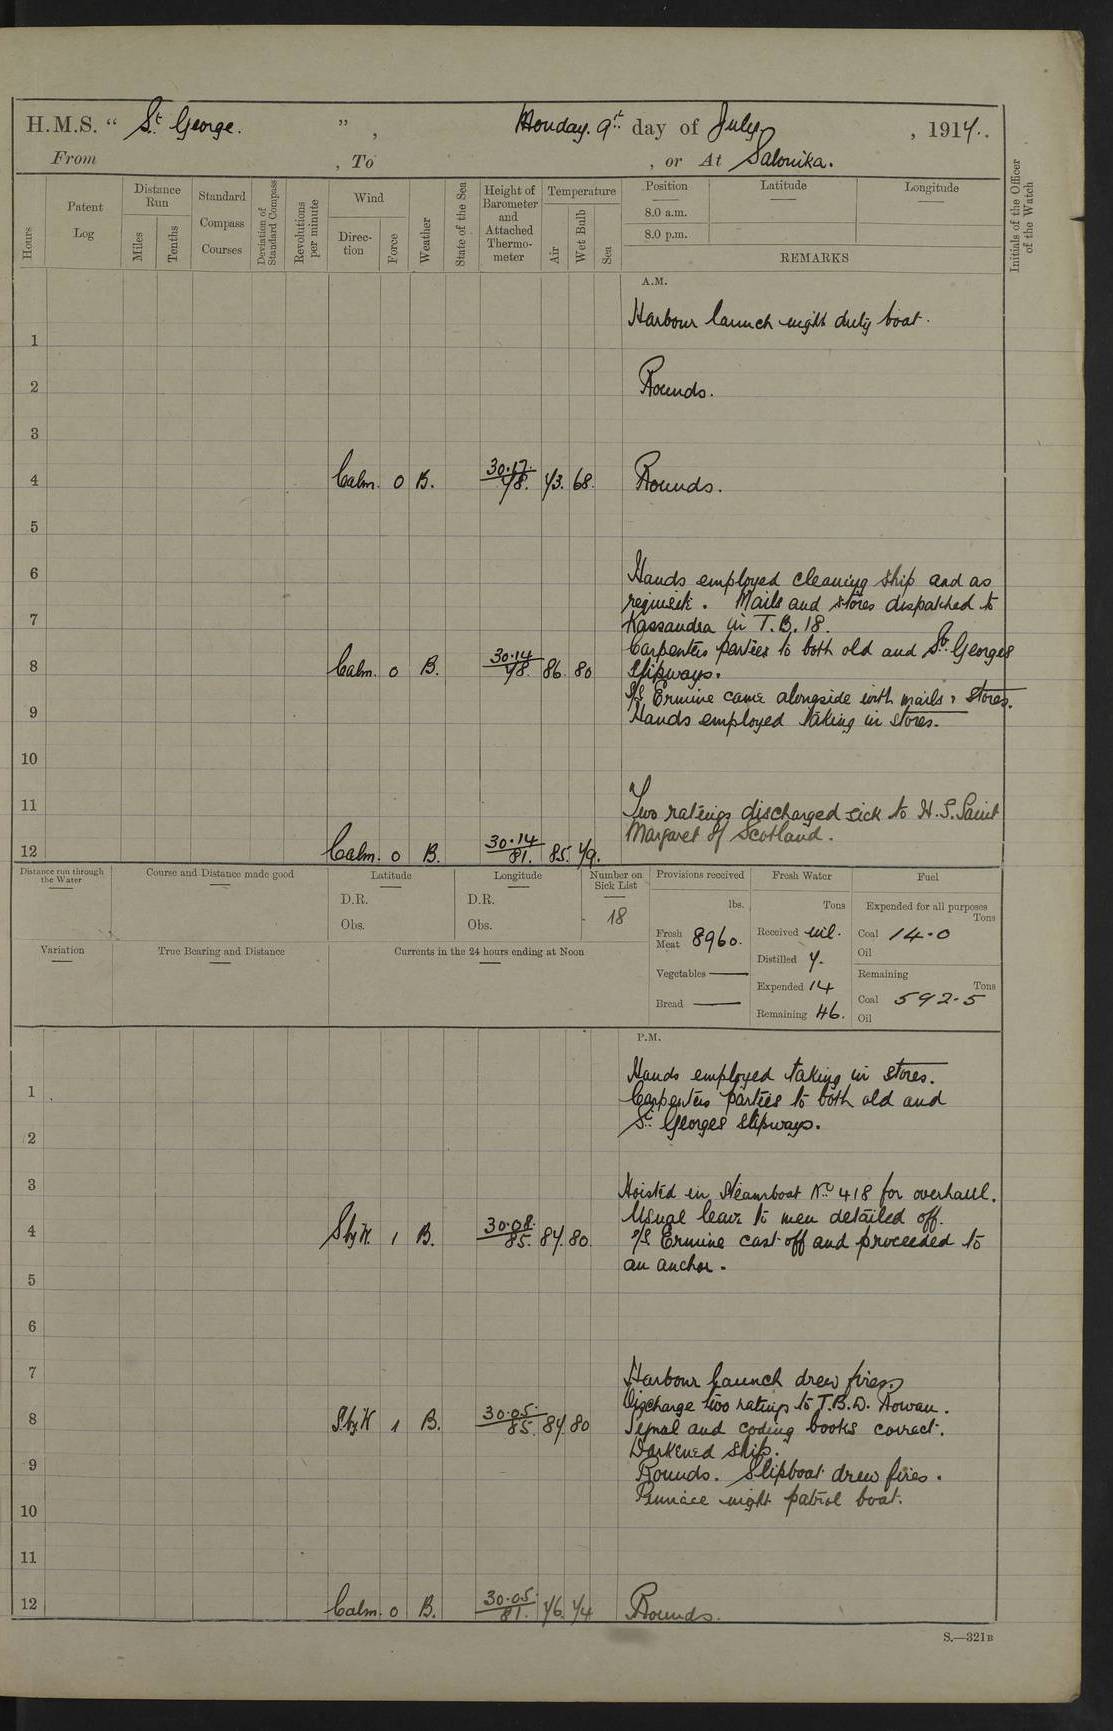 H.M.S. " St. George. " , Monday. 9th day of July , 1917.
From , To , or At Salonika.
Hours
Patent Log
Distance Run
Miles
Tenths
Standard Compass Courses
Deviation of Standard Compass
Revolutions per minute
Wind
Direction
Force
Weather
State of the Sea
Height of Barometer and Attached Thermometer
Temperature
Air
Wet Bulb
Sea
Position
Latitude
Longitude
8.0 a.m.
8.0 p.m.
REMARKS
Initials of the Officer of the Watch
A.M.
Harbour launch night duty boat.
1
2 Rounds.
3
4 Calm. 0 B. 30.17. 78. 73. 68. Rounds.
5
6 Hands employed cleaning ship and as
requisite. Mails and stores dispatched to
7 Kassandra in T.B. 18.
Carpenters parties to both old and St. Georges
8 Calm. 0 B. 30.14 78. 86. 80 slipways.
S/S Ermine came alongside with mails & stores.
9 Hands employed taking in stores.
10
11 Two ratings discharged sick to H.S. Saint
Margaret of Scotland.
12 Calm. 0 B. 30.14 81. 85. 79.
Distance run through the Water
Course and Distance made good
Latitude
D.R.
Obs.
Longitude
D.R.
Obs.
Number on Sick List
18
Provisions received
lbs.
Fresh Meat 8960.
Vegetables —
Bread —
Fresh Water
Tons
Received nil.
Distilled 7.
Expended 14
Remaining 46.
Fuel
Expended for all purposes
Tons
Coal 14.0
Oil
Remaining
Tons
Coal 592.5
Oil
Variation
True Bearing and Distance
Currents in the 24 hours ending at Noon
P.M.
Hands employed taking in stores.
1 Carpenters parties to both old and
St. Georges slipways.
2
3 Hoisted in Steamboat No. 418 for overhaul.
Usual leave to men detailed off.
4 SbyW. 1 B. 30.08. 85. 87. 80. S/S Ermine cast off and proceeded to
an anchor.
5
6
7 Harbour launch drew fires.
Discharge two ratings to T.B.D. Rowan.
8 SbyW 1 B. 30.05. 85. 87. 80 Signal and coding books correct.
Darkened ship.
9 Rounds. Slipboat drew fires.
Pinnace night patrol boat.
10
11
12 Calm. 0 B. 30.05. 81. 76. 74 Rounds.
S.—321B